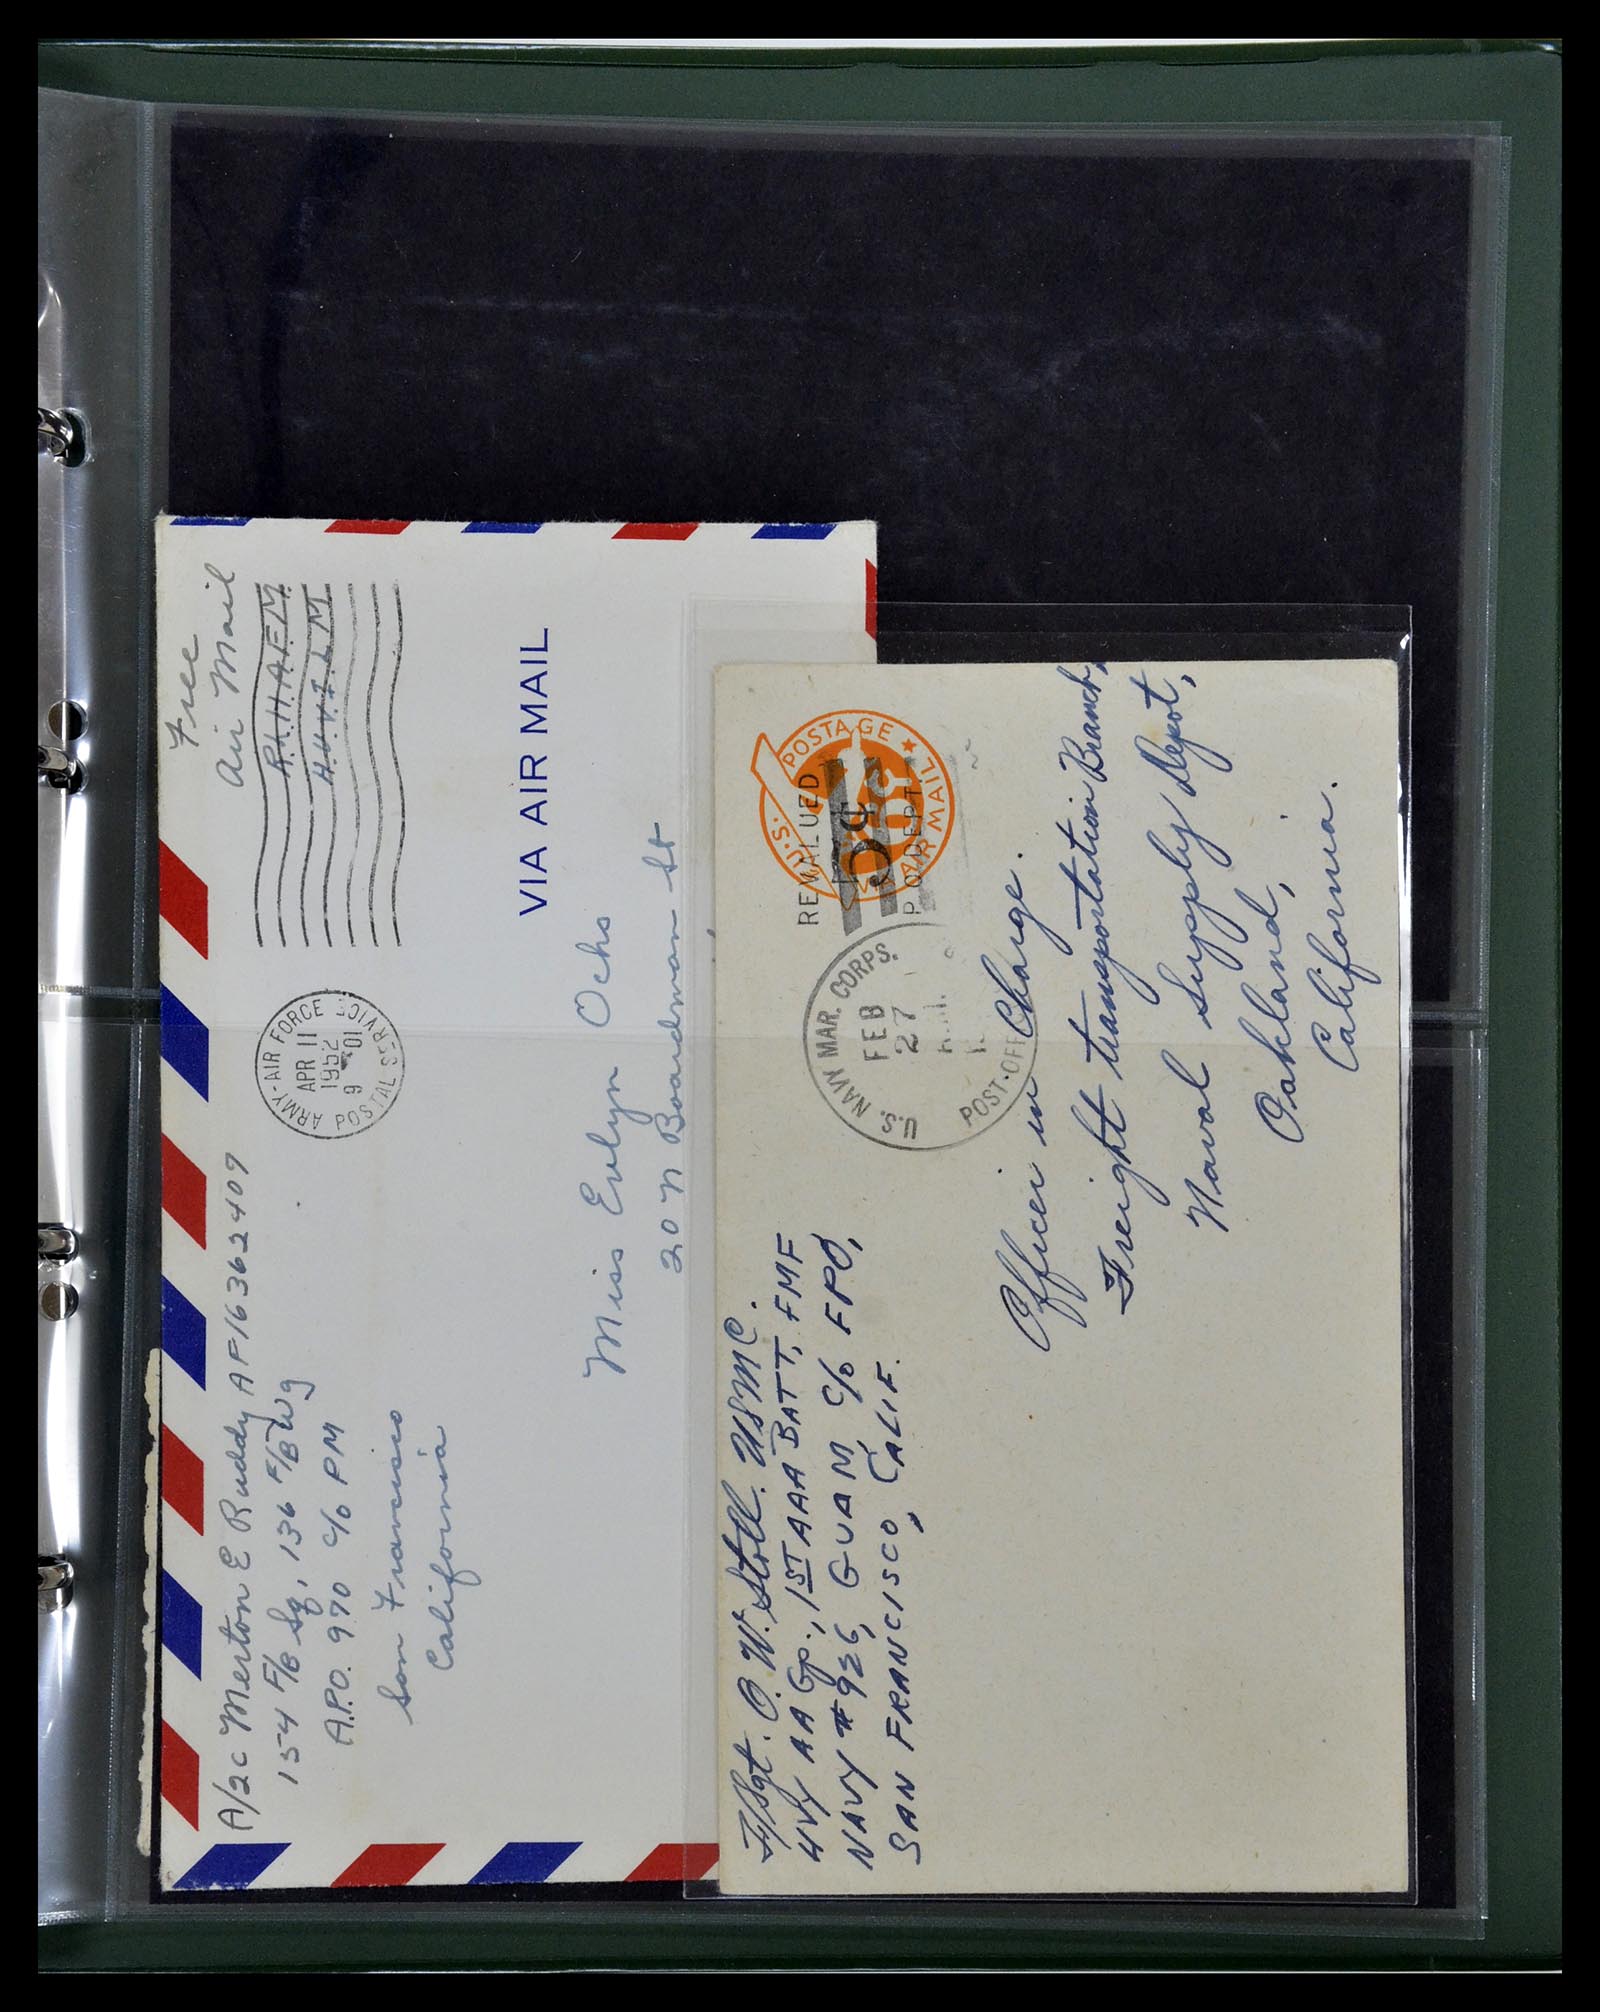 A/2c Merton E Ruddy AF16362409
154 F/B Sq, 136 F/B Wg
A.P.O. 970 c/o PM
San Francisco
California
ARMY-AIR FORCE POSTAL SERVICE
APR 11
1952
9 01
Free
Air Mail
VIA AIR MAIL
Miss Evlyn Ochs
20 N Boardman St
F/Sgt. O. W. Stoll. USMC.
HVY AA Gp., 1ST AAA BATT, FMF
NAVY #926, GUAM, c/o FPO,
SAN FRANCISCO, CALIF.
U.S. NAVY MAR. CORPS.
FEB
27
POST-OFF
U.S. POSTAGE
AIR MAIL
REVALUED
5¢
P.O. DEPT.
Officer in Charge.
Freight transportation Branch,
Naval Supply Depot,
Oakland,
California.